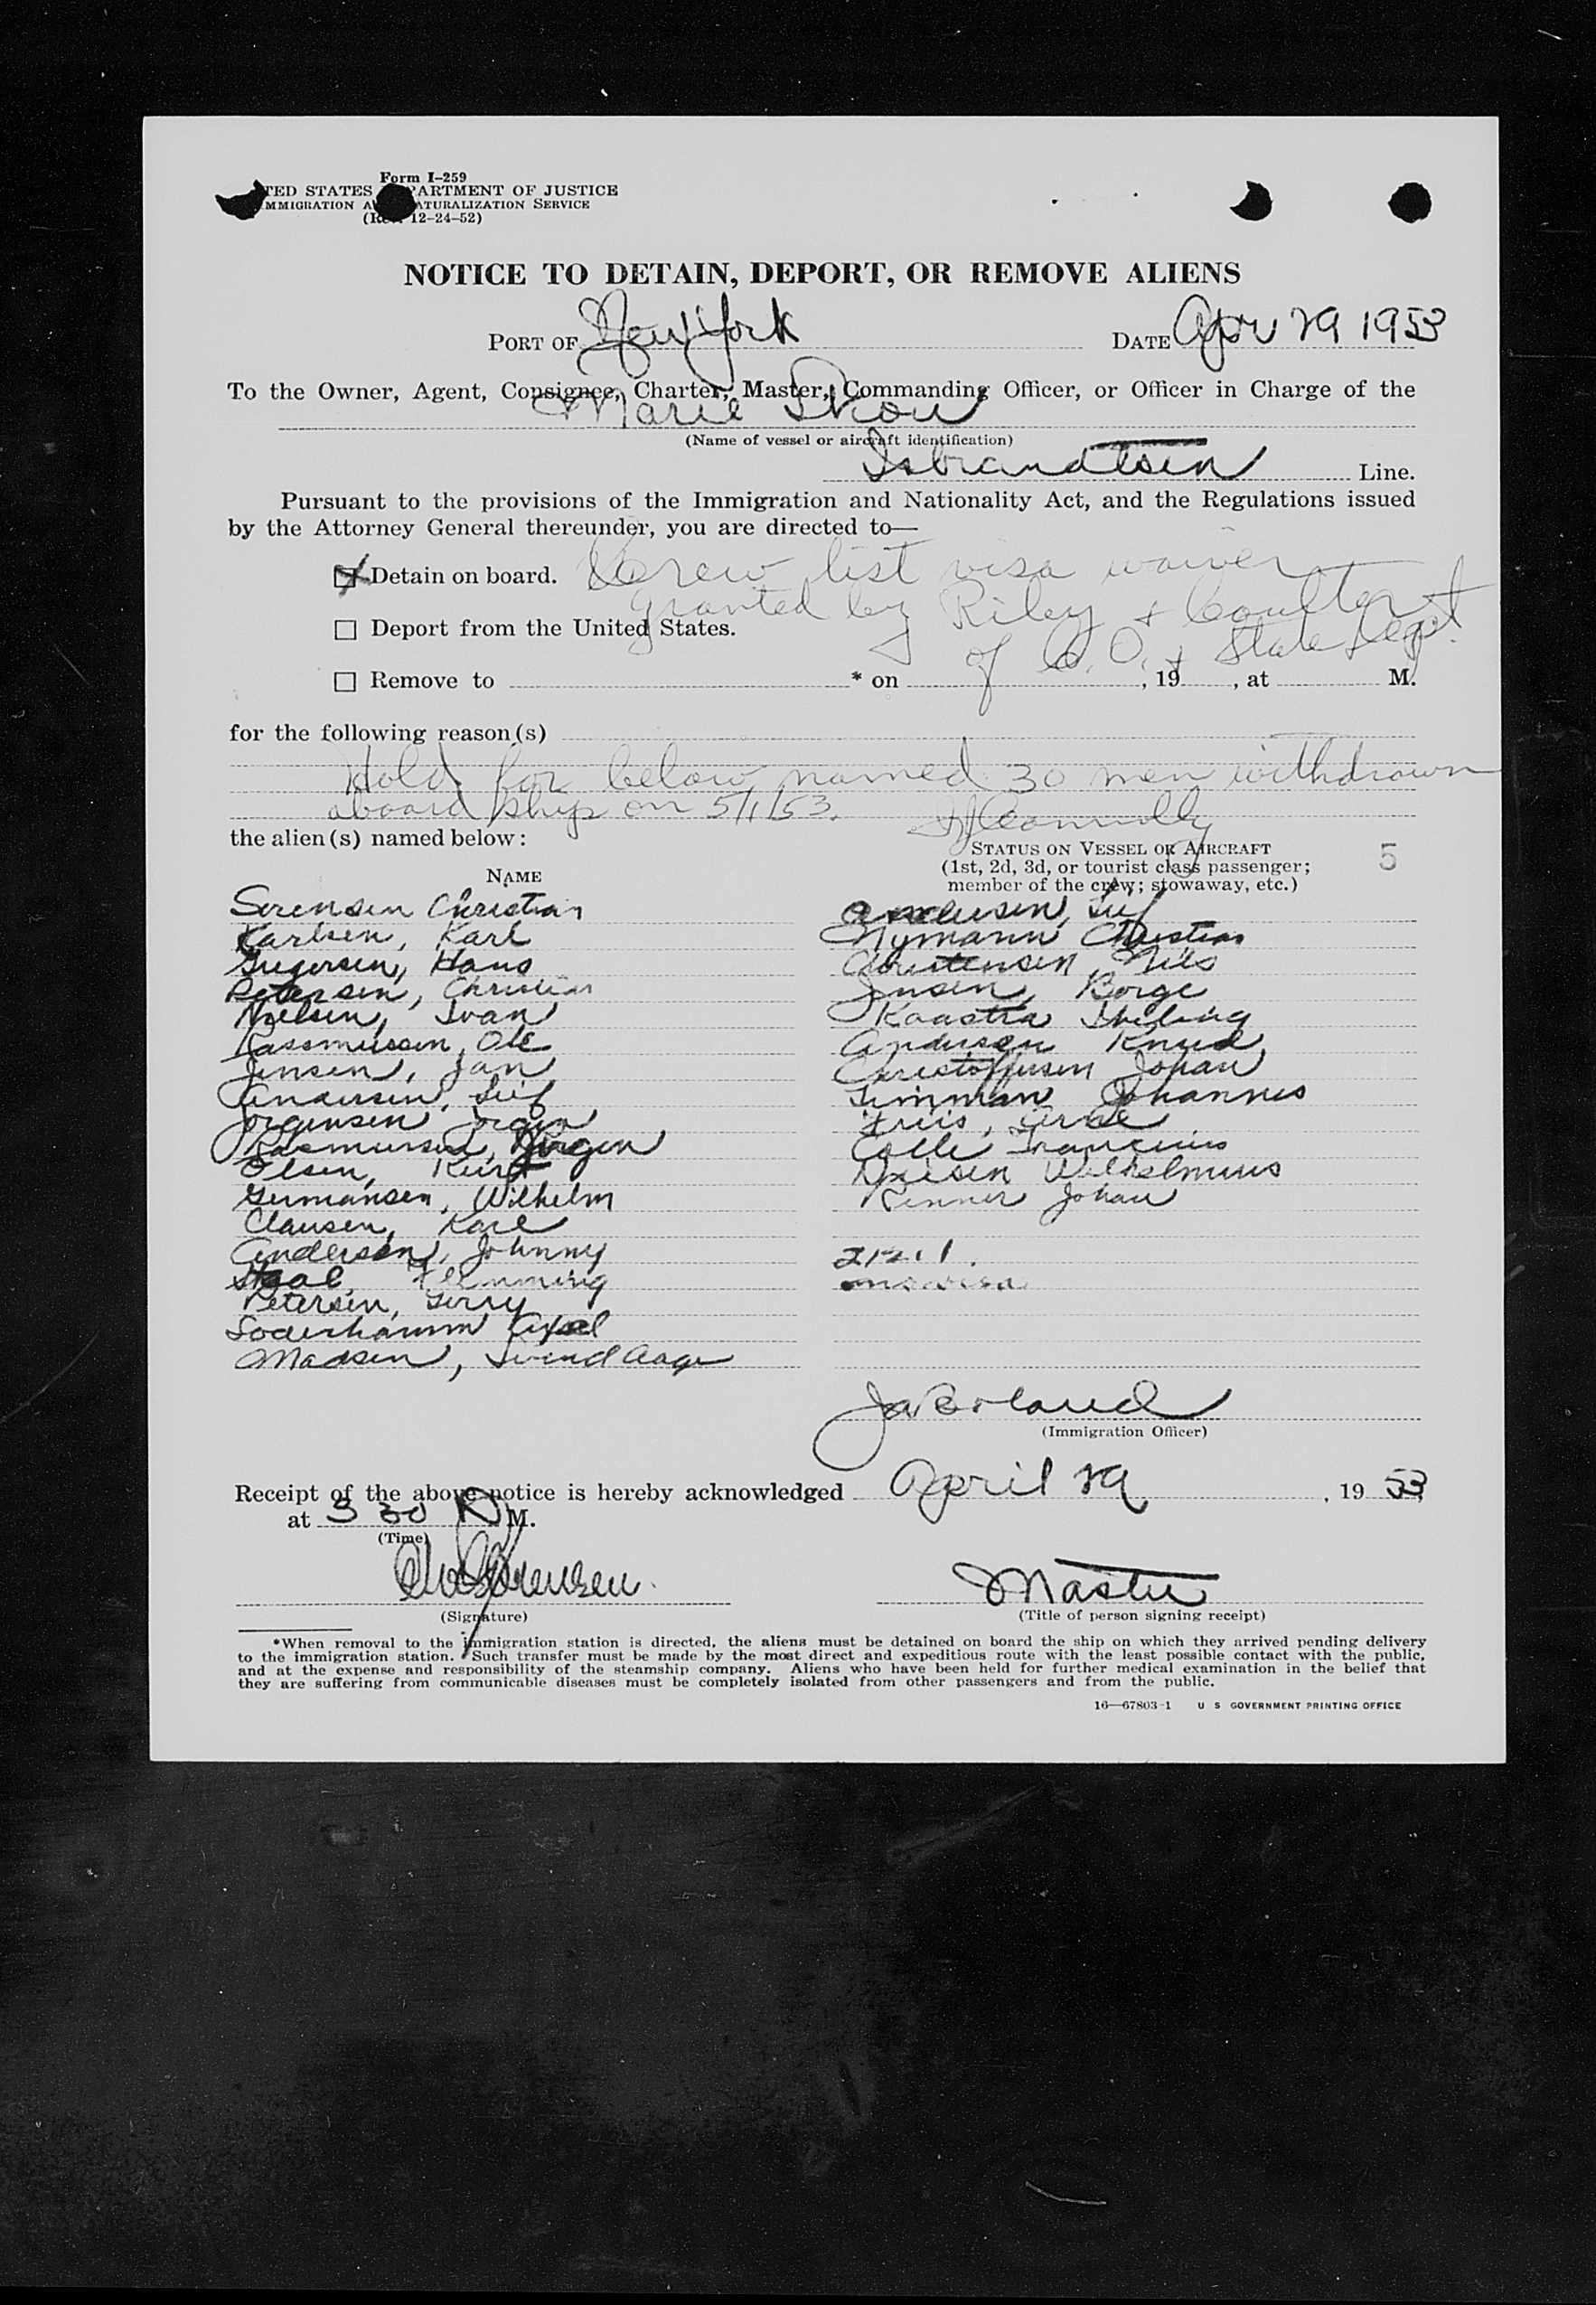 Form I-259
TED STATES PARTMENT OF JUSTICE
MMIGRATION A ATURALIZATION SERVICE
12-24-52)
NOTICE TO DETAIN, DEPORT, OR REMOVE ALIENS
PORT OF New York DATE Apr 29 1953
To the Owner, Agent, Consignee, Charter, Master, Commanding Officer, or Officer in Charge of the
Marie Skou
(Name of vessel or aircraft identification)
Isbrandtsen Line.
Pursuant to the provisions of the Immigration and Nationality Act, and the Regulations issued
by the Attorney General thereunder, you are directed to—
Detain on board. Crew list visa waiver
granted by Riley & Coulter
Deport from the United States.
of C.O. & State Dept.
Remove to * on , 19 , at M.
for the following reason(s)
Hold for below named 30 men withdrawn
aboard ship on 5/1/53. Connolly
the alien(s) named below:
STATUS ON VESSEL OR AIRCRAFT
(1st, 2d, 3d, or tourist class passenger;
member of the crew; stowaway, etc.)
5
NAME
Sorensen Christian
Karlsen, Karl
Hans
Petersen, Christian
Nielsen, Ivan
Rassmussen, Ole
Jensen, Jan
Andersen, Leif
Jorgensen Jorgen
Rasmussen, Jorgen
Olsen, Kurt
Germansen, Wilhelm
Clausen, Karl
Andersen, Johnny
Staal Flemming
Petersen, Gerry
Soderhamm Axel
Madsen, Svend Aage
Leif
Nymann Christian
Christensen Nils
Jensen, Borge
Andersen Knud
Christoffersen Johan
Timman Johannes
Friis, Arne
Wilhelmus
Renner Johan
212.1
no visa
Boland
(Immigration Officer)
Receipt of the above notice is hereby acknowledged April 29, 19 53
at 3 30 P M.
(Time)
Sorensen.
Master
(Signature)
(Title of person signing receipt)
*When removal to the immigration station is directed, the aliens must be detained on board the ship on which they arrived pending delivery
to the immigration station. Such transfer must be made by the most direct and expeditious route with the least possible contact with the public,
and at the expense and responsibility of the steamship company. Aliens who have been held for further medical examination in the belief that
they are suffering from communicable diseases must be completely isolated from other passengers and from the public.
16—67803-1 U S GOVERNMENT PRINTING OFFICE